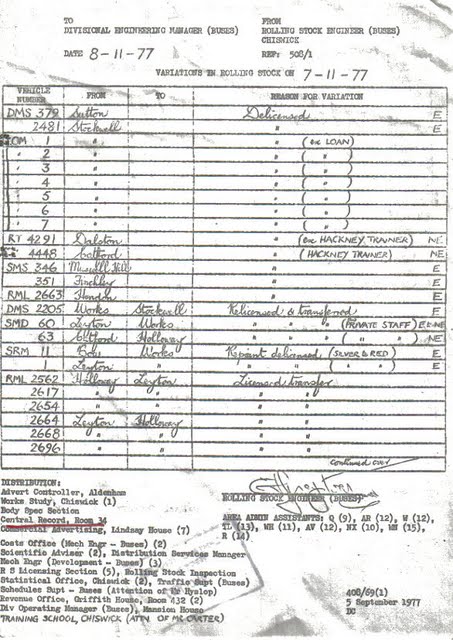 TO FROM
DIVISIONAL ENGINEERING MANAGER (BUSES) ROLLING STOCK ENGINEER (BUSES)
CHISWICK
DATE 8-11-77 REF: 508/1
VARIATIONS IN ROLLING STOCK ON 7-11-77
VEHICLE NUMBER FROM TO REASON FOR VARIATION
DMS 379 Sutton Delicensed E
2481 Stockwell " E
1 " " (ex LOAN)
" 2 " " ( " )
" 3 " " ( " )
" 4 " " ( " )
" 5 " " ( " )
" 6 " " ( " )
" 7 " " ( " )
RT 4291 Dalston " (ex HACKNEY TRAINER) NE
" 4448 Catford " (HACKNEY TRAINER) NE
SMS 346 Muswell Hill " E
351 Finchley " E
RML 2663 Hendon " E
DMS 2205 Works Stockwell Relicensed & transferred E
SMD 60 Leyton Works " " " (PRIVATE STAFF)
63 Holloway " " " ( " ) NE
SRM 11 Works Repaint delicensed (SILVER & RED) E
1 Leyton " " " ( " " ) E
RML 2562 Holloway Leyton Licensed transfer
2617 " " " "
2654 " " " "
2664 Leyton Holloway " "
2668 " " " "
2696 " " " "
continued over
DISTRIBUTION:
Advert Controller, Aldenham
Works Study, Chiswick (1) ROLLING STOCK ENGINEER (BUSES)
Body Spec Section
Central Record, Room 34 AREA ADMIN ASSISTANTS: Q (9), AR (12), W (12),
Commercial Advertising, Lindsay House (7) TL (13), WH (11), AV (12), NX (10), WN (15),
R (14)
Costs Office (Mech Engr - Buses) (2)
Scientific Adviser (2), Distribution Services Manager
Mech Engr (Development - Buses) (3)
R S Licensing Section (5), Rolling Stock Inspection
Statistical Office, Chiswick (2), Traffic Supt (Buses)
Schedules Supt - Buses (Attention of Mr Hyslop) 408/69(1)
Revenue Office, Griffith House, Room 432 (2) 5 September 1977
Div Operating Manager (Buses), Mansion House DC
TRAINING SCHOOL, CHISWICK (ATTN OF MR CARTER)